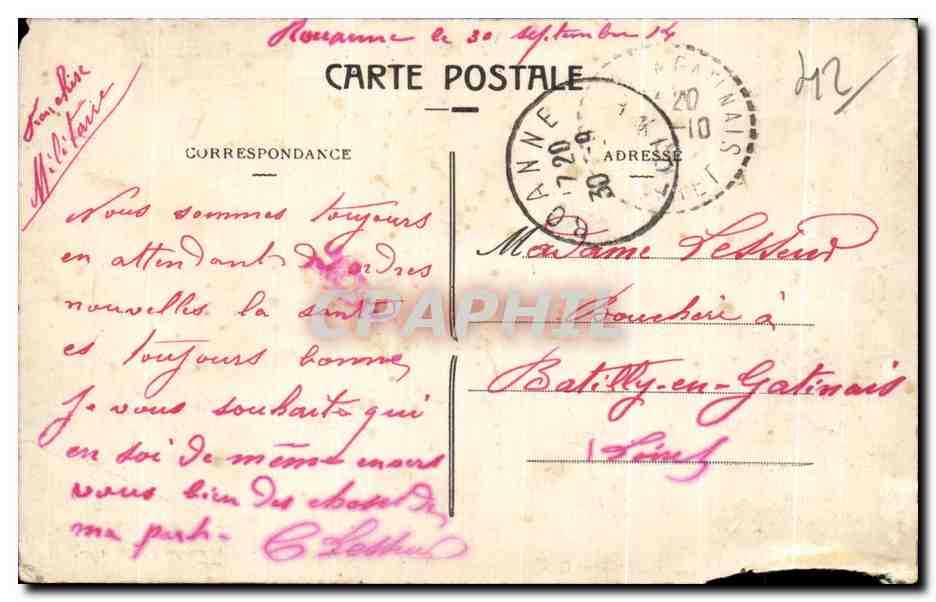 Rouanne le 30 septembre 14
42
CARTE POSTALE
Franchise
Militaire
CORRESPONDANCE
ADRESSE
ROANNE
17 20
30 -9
14
GATINAIS
20
-10
RET
Nous sommes toujours
en attendant des ordres
nouvelles la santé
es toujours bonne
Je vous souhaite qui
en soi de même envers
vous bien des choses de
ma part.
C Lesseur
Madame Lesseur
Bouchère à
Batilly-en-Gatinais
Loiret
CPAPHIL